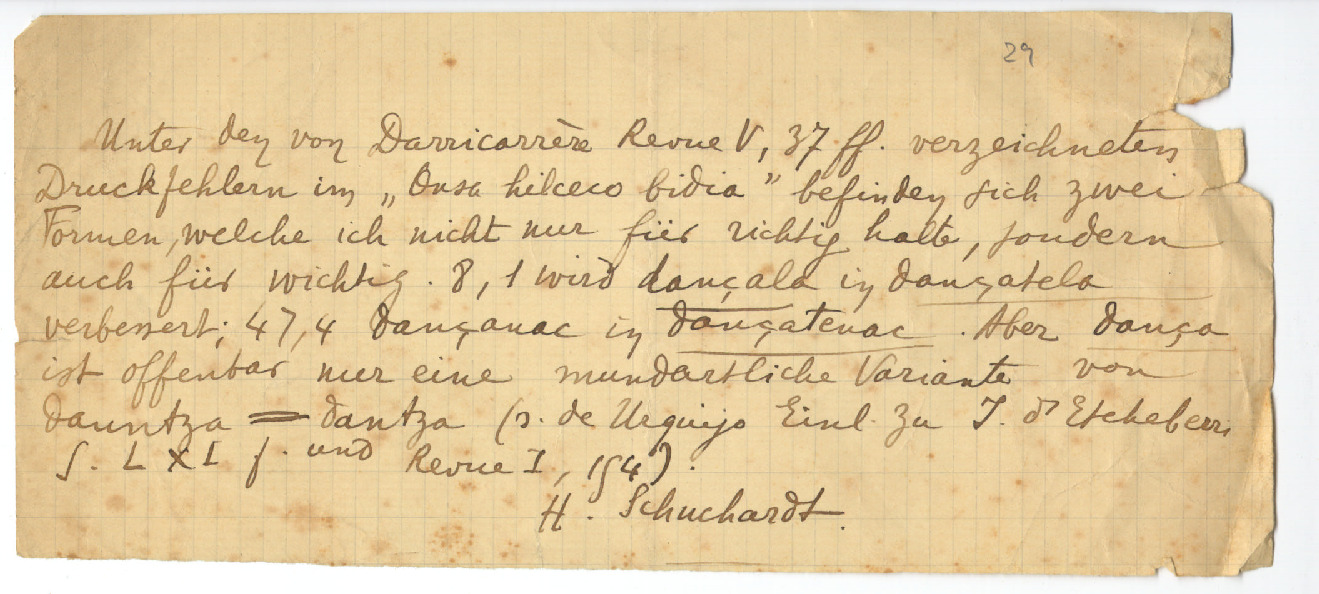 29
Unter den von Darricarrère Revue V, 37 ff. verzeichneten
Druckfehlern im „Onsa hilceco bidia" befinden sich zwei
Formen, welche ich nicht nur für richtig halte, sondern
auch für wichtig. 8, 1 wird dançala in dançatela
verbessert; 47,4 dançanac in dançatenac. Aber dança
ist offenbar nur eine mundartliche Variante von
dauntza = dantza (s. de Urquijo Einl. zu J. d'Etcheberri
S. LXI f. und Revue I, 154).
H. Schuchardt.